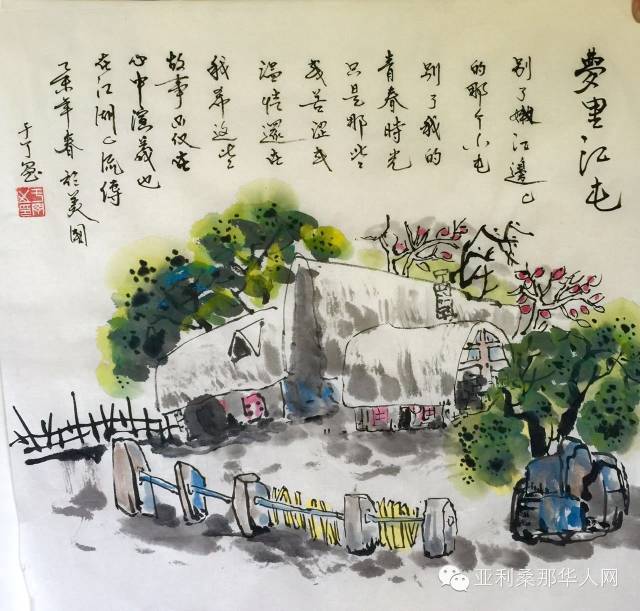 夢里江屯
别了嫩江邊上
的那个小屯
别了我的
青春時光
只是那些
或苦涩或
温情還在
我希這些
故事不仅在
心中演義也
在江湖上流傳
乙未年春於美國
亚利桑那华人网